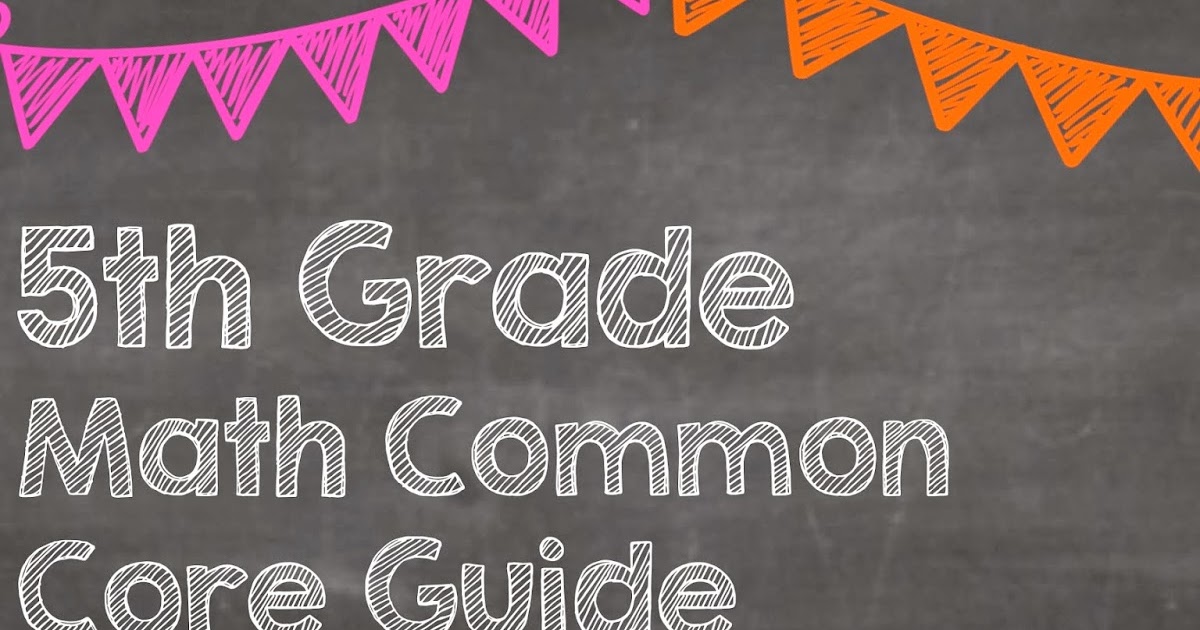 5th Grade
Math Common
Core Guide